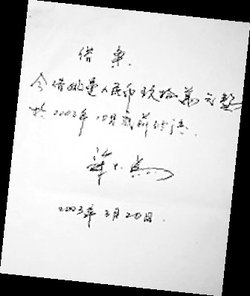 借条
今借姚曼人民币现拾万元整
於2003年10月底前付清.
2003年3月20日.